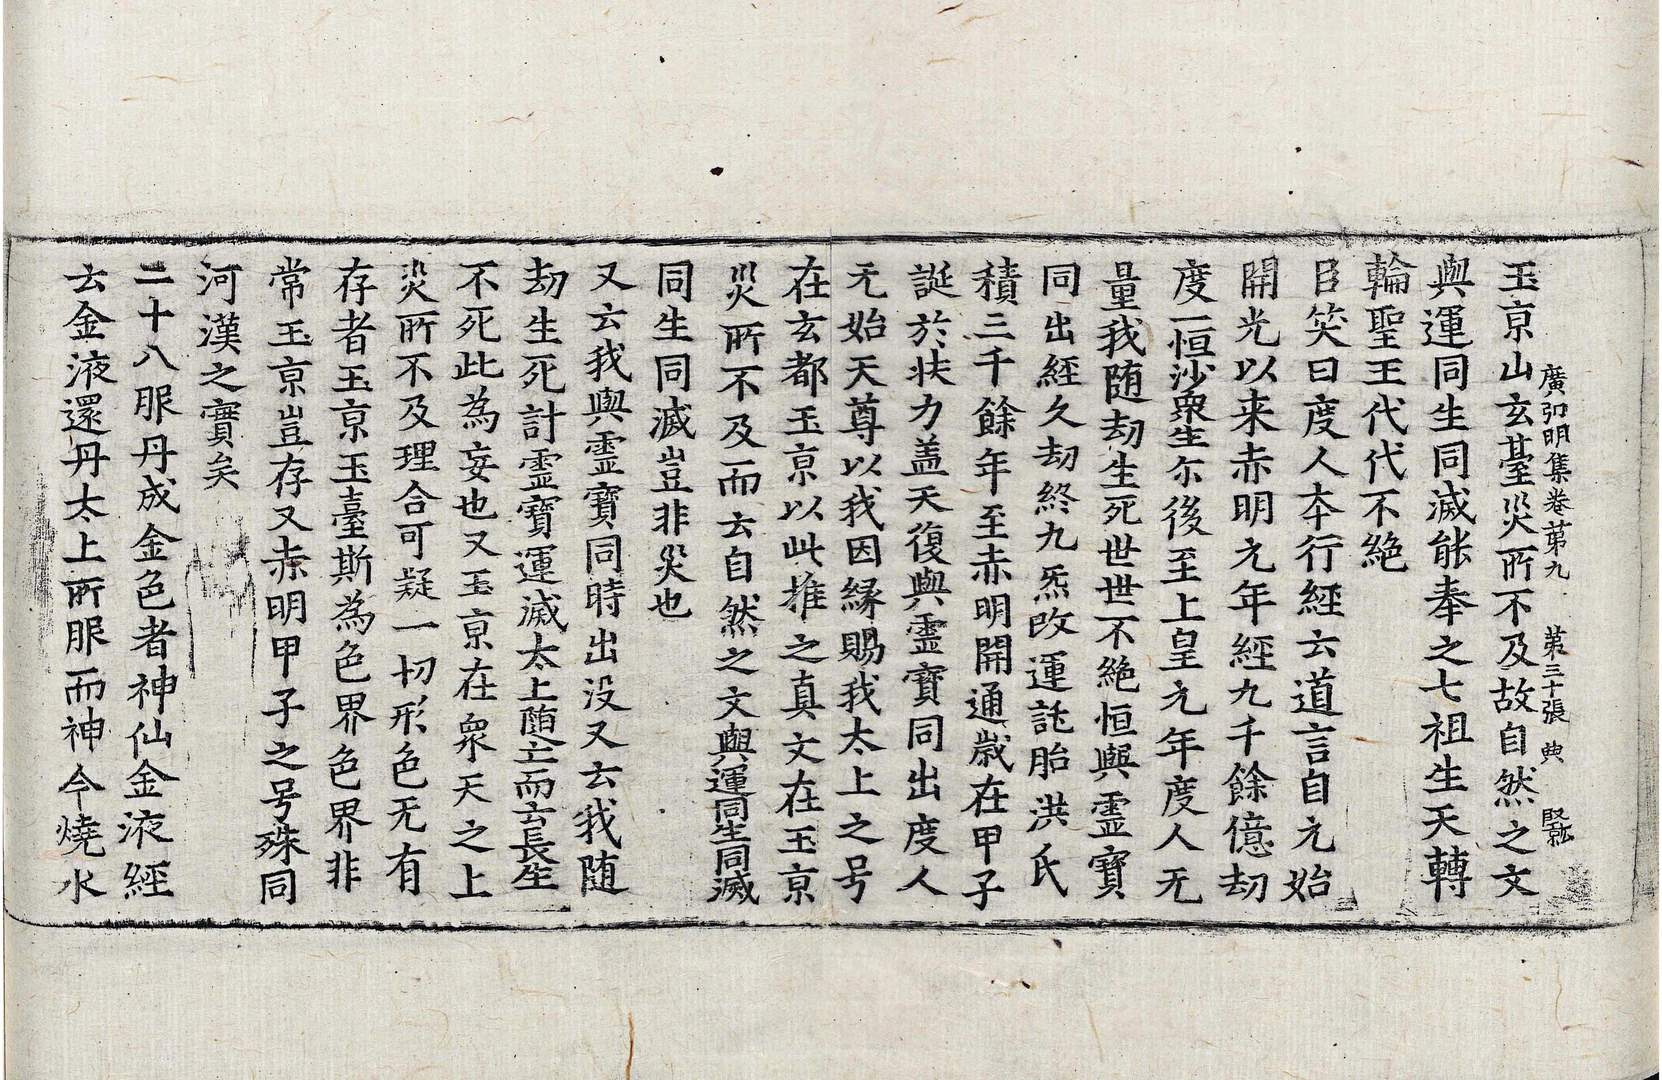 廣弘明集卷苐九　苐三十張　典　
玉京山玄臺災所不及故自然之文
與運同生同滅能奉之七祖生天轉
輪聖王代代不絶
臣笑曰度人本行經云道言自元始
開光以来赤明元年經九千餘億劫
度一恒沙衆生尒後至上皇元年度人无
量我随劫生死世世不絶恒與靈寶
同出經久劫終九炁改運託胎洪氏
積三千餘年至赤明開通歳在甲子
誕於扶力盖天復與靈寶同出度人
元始天尊以我因縁賜我太上之号
在玄都玉京以此推之真文在玉京
災所不及而云自然之文與運同生同滅
同生同滅豈非災也
又云我與靈寶同時出没又云我随
劫生死計靈寶運滅太上随亡而云長生
不死此為妄也又玉京在衆天之上
災所不及理合可疑一切形色无有
存者玉京玉臺斯為色界色界非
常玉京豈存又赤明甲子之号殊同
河漢之實矣
二十八服丹成金色者神仙金液經
云金液還丹太上所服而神今燒水